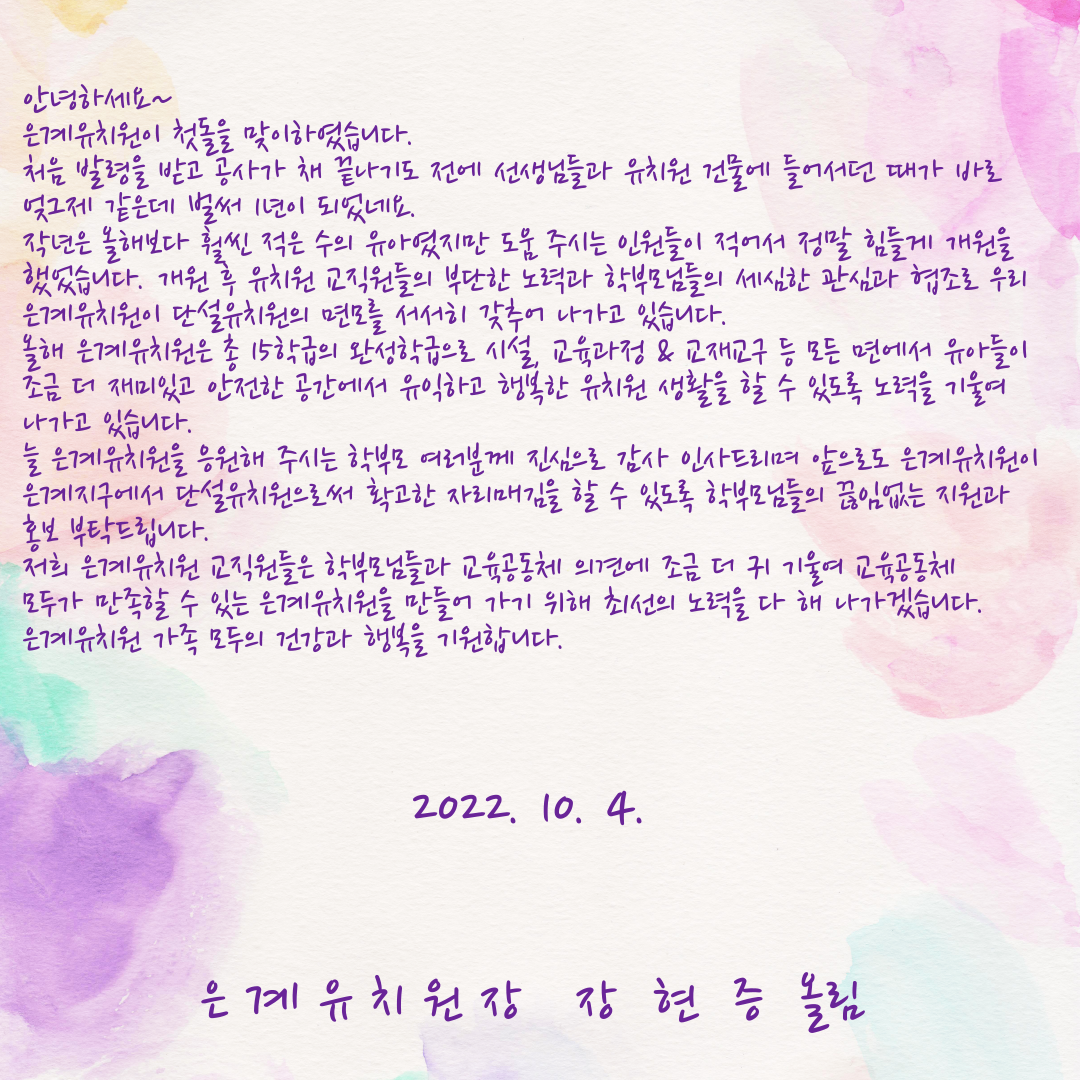 안녕하세요~
은계유치원이 첫돌을 맞이하였습니다.
처음 발령을 받고 공사가 채 끝나기도 전에 선생님들과 유치원 건물에 들어서던 때가 바로
엊그제 같은데 벌써 1년이 되었네요.
작년은 올해보다 훨씬 적은 수의 유아였지만 도움 주시는 인원들이 적어서 정말 힘들게 개원을
했었습니다. 개원 후 유치원 교직원들의 부단한 노력과 학부모님들의 세심한 관심과 협조로 우리
은계유치원이 단설유치원의 면모를 서서히 갖추어 나가고 있습니다.
올해 은계유치원은 총 15학급의 완성학급으로 시설, 교육과정 & 교재교구 등 모든 면에서 유아들이
조금 더 재미있고 안전한 공간에서 유익하고 행복한 유치원 생활을 할 수 있도록 노력을 기울여
나가고 있습니다.
늘 은계유치원을 응원해 주시는 학부모 여러분께 진심으로 감사 인사드리며 앞으로도 은계유치원이
은계지구에서 단설유치원으로써 확고한 자리매김을 할 수 있도록 학부모님들의 끊임없는 지원과
홍보 부탁드립니다.
저희 은계유치원 교직원들은 학부모님들과 교육공동체 의견에 조금 더 귀 기울여 교육공동체
모두가 만족할 수 있는 은계유치원을 만들어 가기 위해 최선의 노력을 다 해 나가겠습니다.
은계유치원 가족 모두의 건강과 행복을 기원합니다.
2022. 10. 4.
은계유치원장 장 현 증 올림